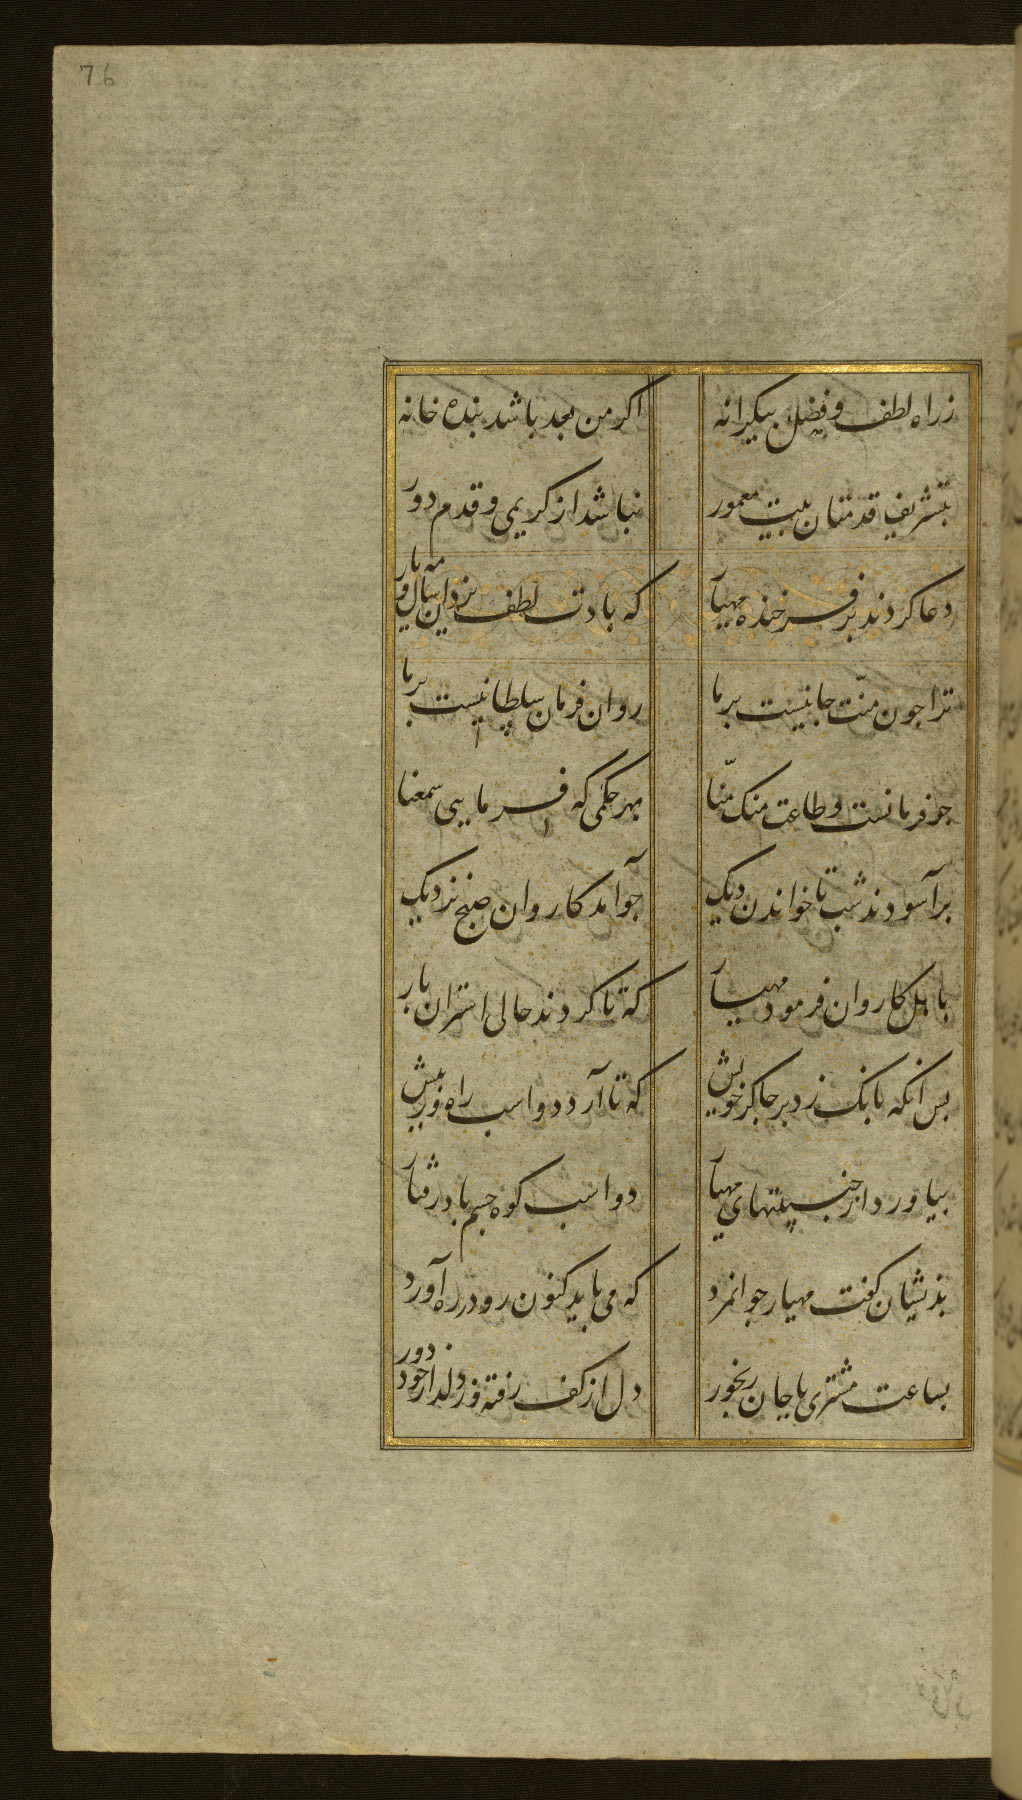 76
زراه لطف و فضل بیکرانه اگر من بعد باشد بنده خانه
بتشریف قدمتان بیت معمور نباشد از کریمی و قدم دور
دعا کردند بر فرخنده مهیار که بادت لطف یزدان سال و مه یار
ترا جون منت جانیست بر ما روان فرمان سلطانیست بر ما
جز فرمانست و طاعت منک منا بهر حکمی که فرمایی سمعنا
بر آسودند شب تا خواندن دیک جو آمد کاروان صبح نزدیک
باهل کاروان فرمود مهیار که تا کردند حالی استران بار
بس آنکه بانک زد بر جاکر خویش که تا آرد دو اسب راه ور بیش
بیاورد از جنیبتهای مهیار دو اسب کوه جسم باد رفتار
بذیشان کفت مهیار جوانمرد که می باید کنون رو در ره آورد
بساعت مشتری با جان رنجور دل از کف رفته وز دلدار خود دور